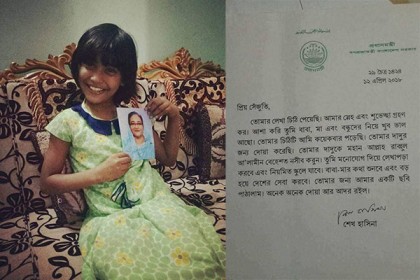 প্রধানমন্ত্রী
গণপ্রজাতন্ত্রী বাংলাদেশ সরকার
২৯ চৈত্র ১৪২৪
১২ এপ্রিল ২০১৮
প্রিয় সেঁজুতি,
তোমার লেখা চিঠি পেয়েছি। আমার স্নেহ এবং শুভেচ্ছা গ্রহণ
কর। আশা করি তুমি বাবা, মা এবং বন্ধুদের নিয়ে খুব ভাল
আছো। তোমার চিঠিটি আমি কয়েকবার পড়েছি। তোমার দাদুর
জন্য দোয়া করেছি। তোমার দাদুকে মহান আল্লাহ রাব্বুল
আ'লামীন বেহেশত নসীব করুন। তুমি মনোযোগ দিয়ে লেখাপড়া
করবে এবং নিয়মিত স্কুলে যাবে। বাবা-মার কথা শুনবে এবং বড়
হয়ে দেশের সেবা করবে। তোমার জন্য আমার একটি ছবি
পাঠালাম। অনেক অনেক দোয়া আর আদর রইল।
শেখ হাসিনা